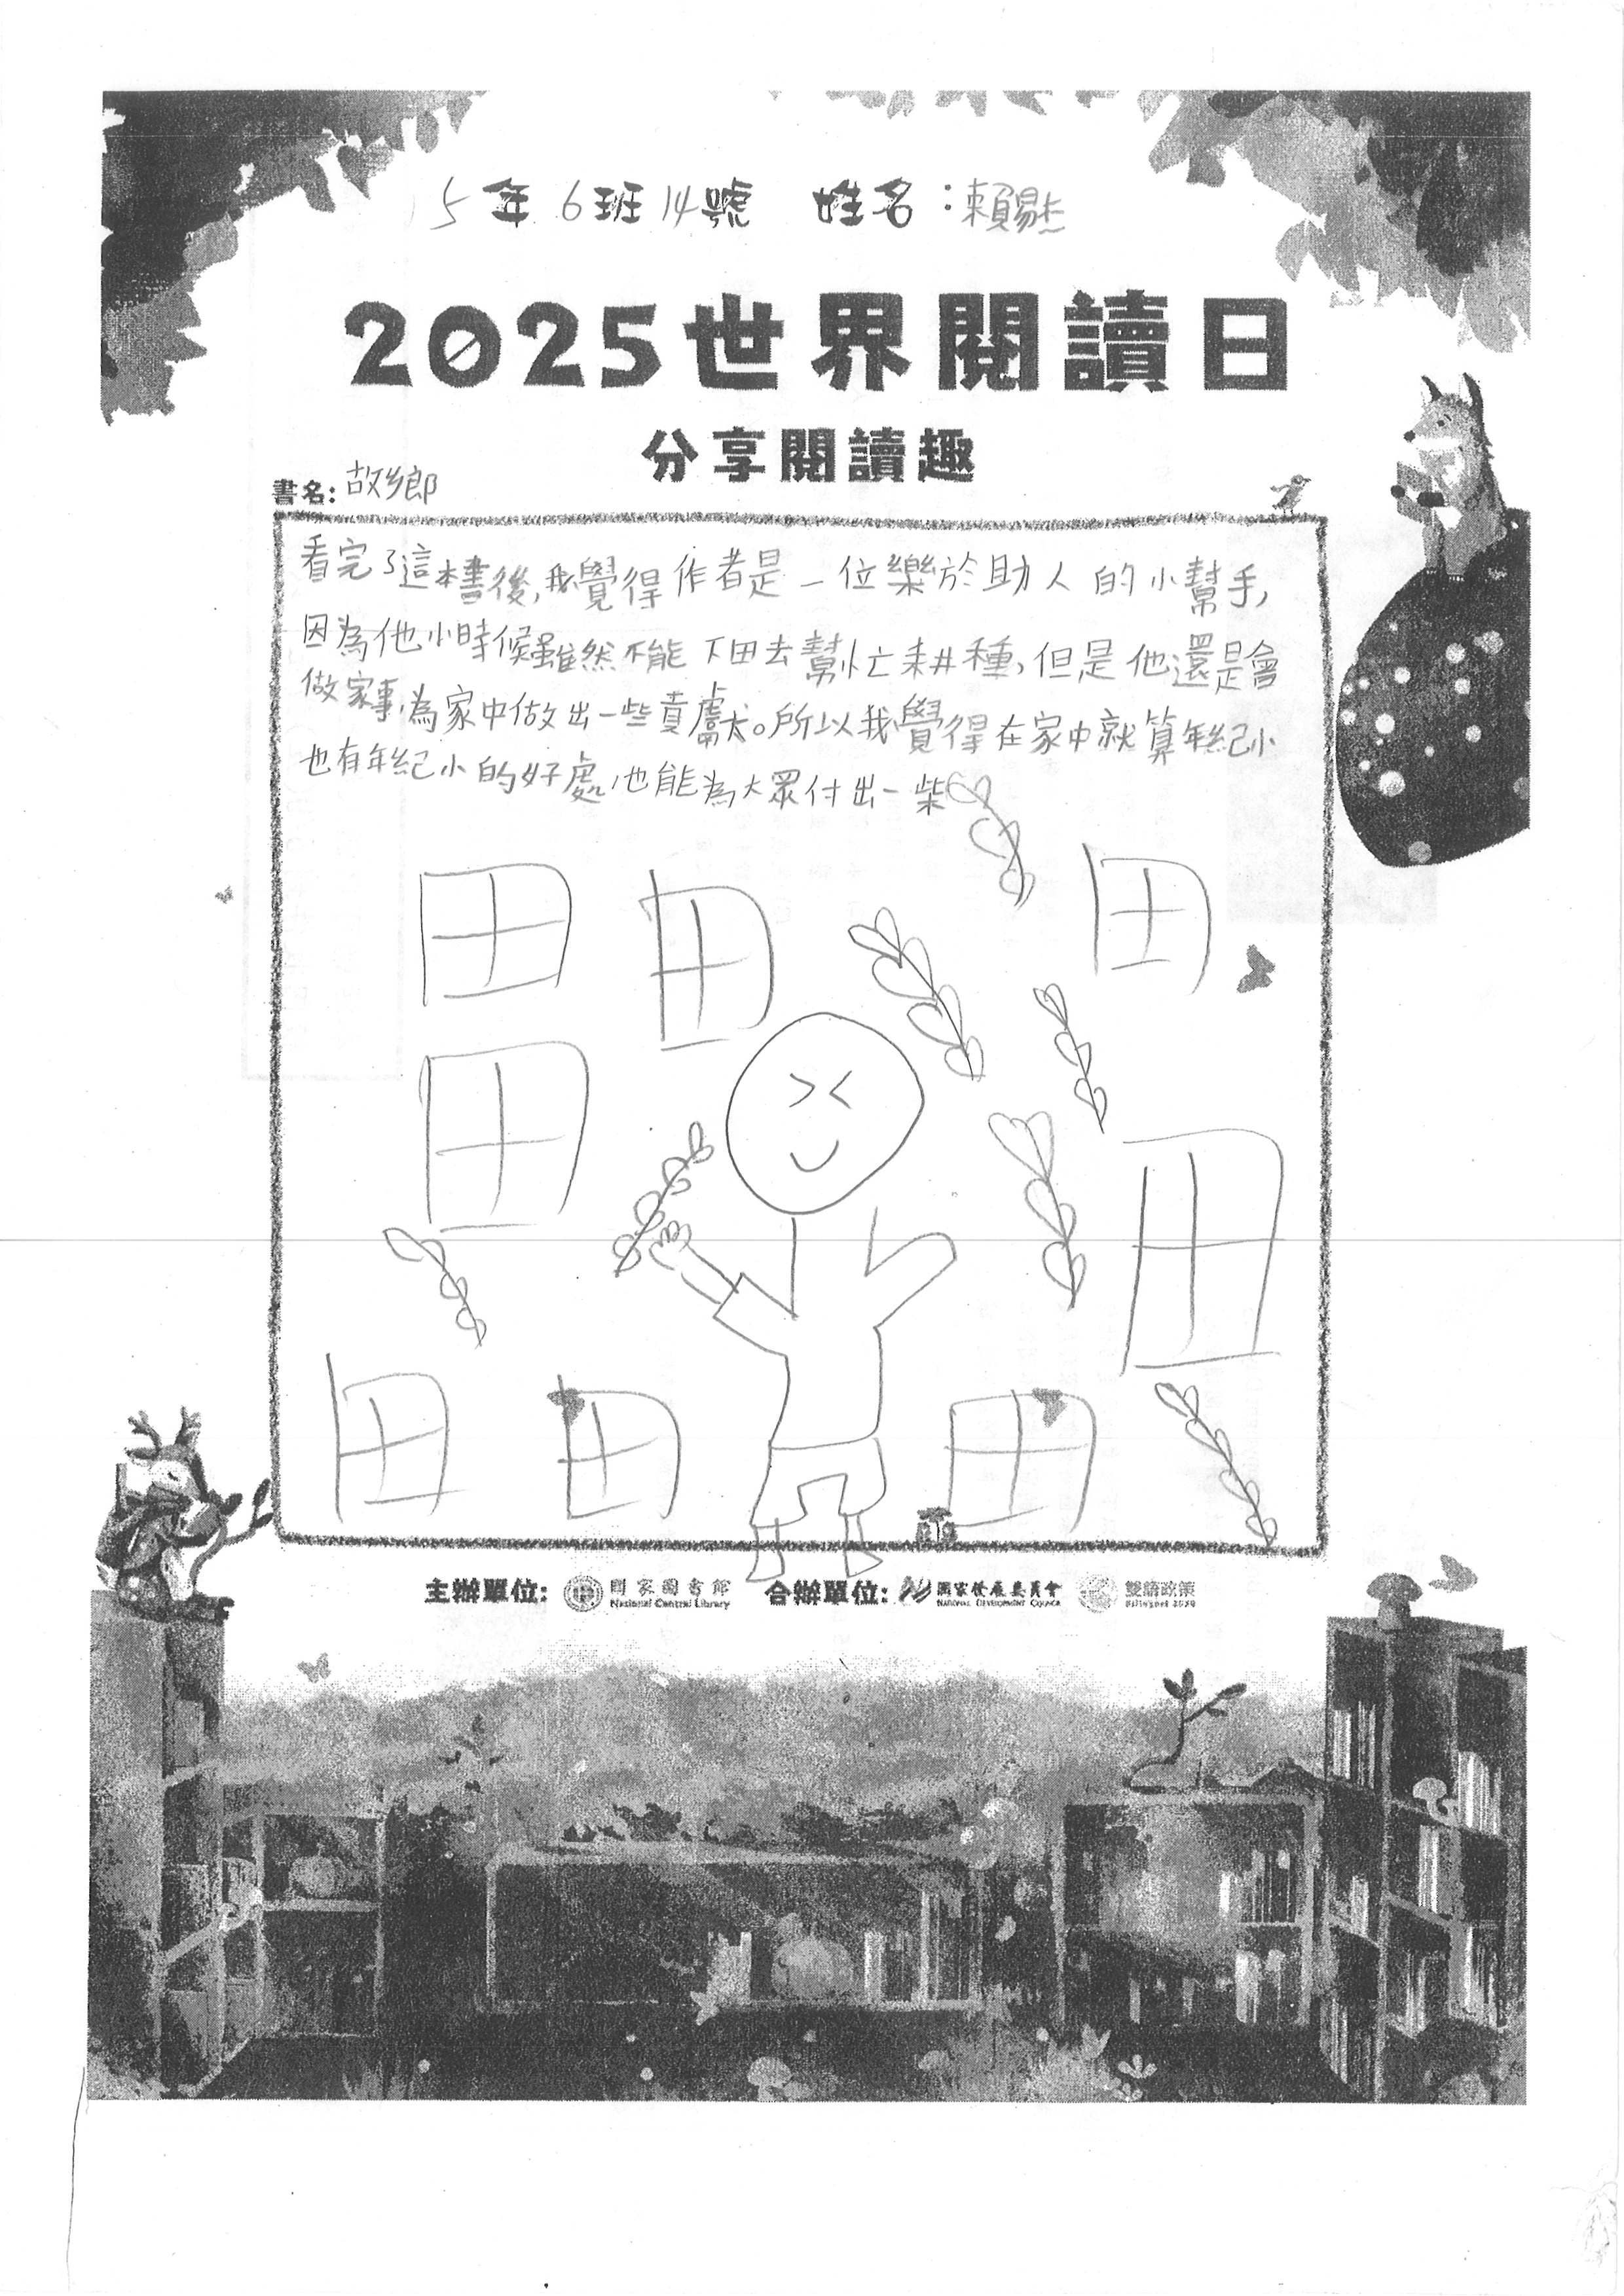 5年6班14號 姓名:賴昜杰
2025世界閱讀日
分享閱讀趣
書名:故鄉
看完了這本書後,我覺得作者是一位樂於助人的小幫手,
因為他小時候雖然不能下田去幫忙耕種,但是他還是會
做家事,為家中做出一些貢獻。所以我覺得在家中就算年紀小
也有年紀小的好處,也能為大眾付出一些
田 田 田
田 田
田 田 田
主辦單位: 國家圖書館 National Central Library 合辦單位: 國家發展委員會 NATIONAL DEVELOPMENT COUNCIL 雙語政策 Bilingual 2030